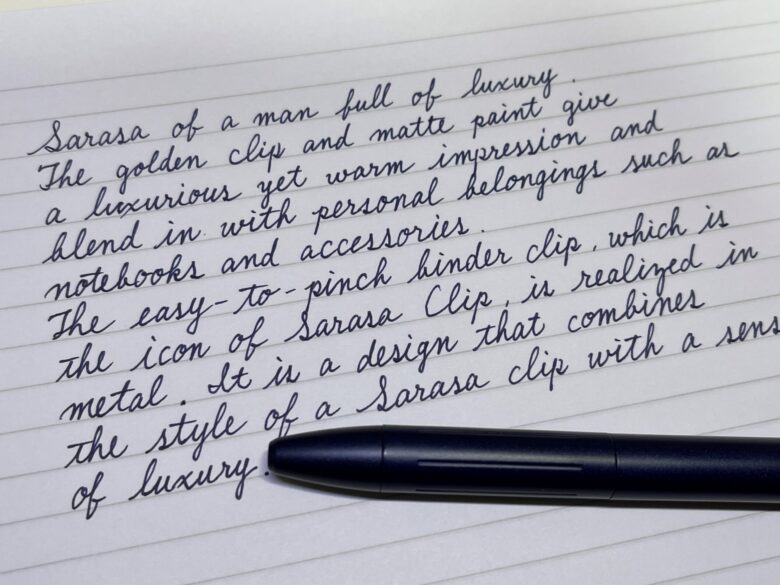 Sarasa of a man full of luxury.
The golden clip and matte paint give
a luxurious yet warm impression and
blend in with personal belongings such as
notebooks and accessories.
The easy-to-pinch binder clip, which is
the icon of Sarasa Clip, is realized in
metal. It is a design that combines
the style of a Sarasa clip with a sens
of luxury.